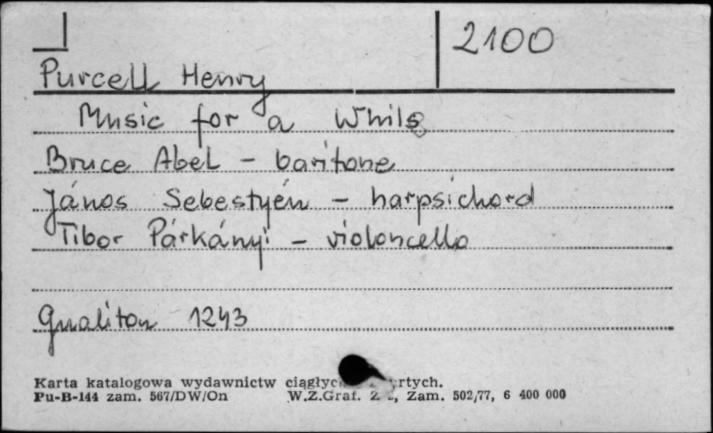 2100
Purcell Henry
Music for a While
Bruce Abel - baritone
János Sebestyén - harpsichord
Tibor Párkányi - violoncello
Qualiton 1243
Karta katalogowa wydawnictw
Pu-B-144 zam. 567/DW/On W.Z.Graf. Zam. 502/77, 6 400 000